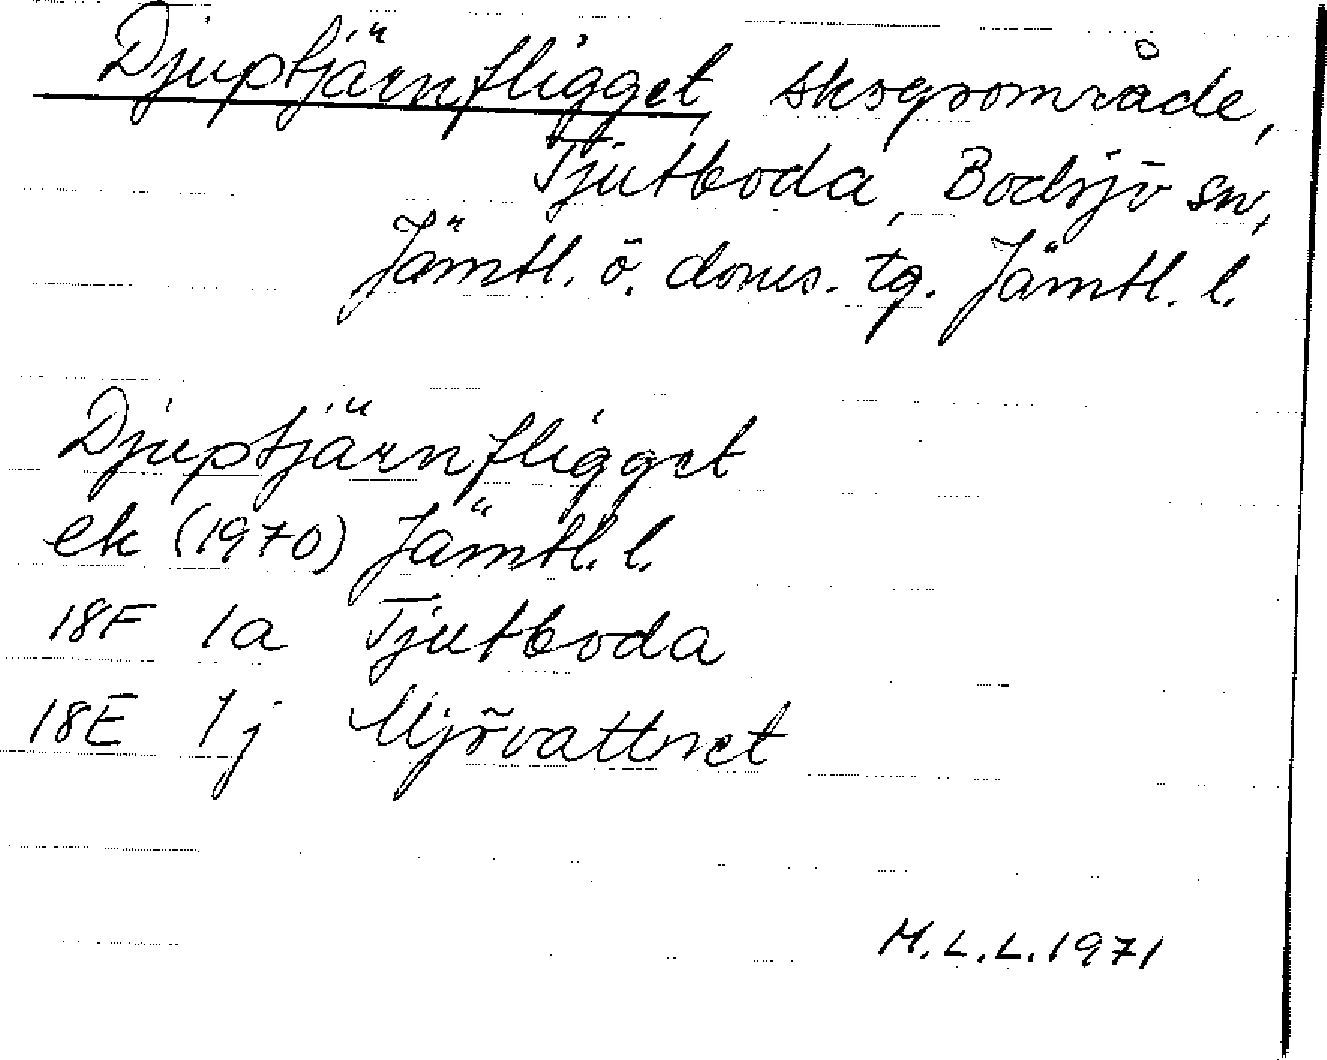 Djuptjärnfligget, skogsområde,
Tjutboda, Bodsjö sn,
Jämtl. ö. doms. tg. Jämtl. l.
Djuptjärnfligget
ek (1970) Jämtl. l.
18F 1a Tjutboda
18E 1j Mjövattnet
M.L.L. 1971